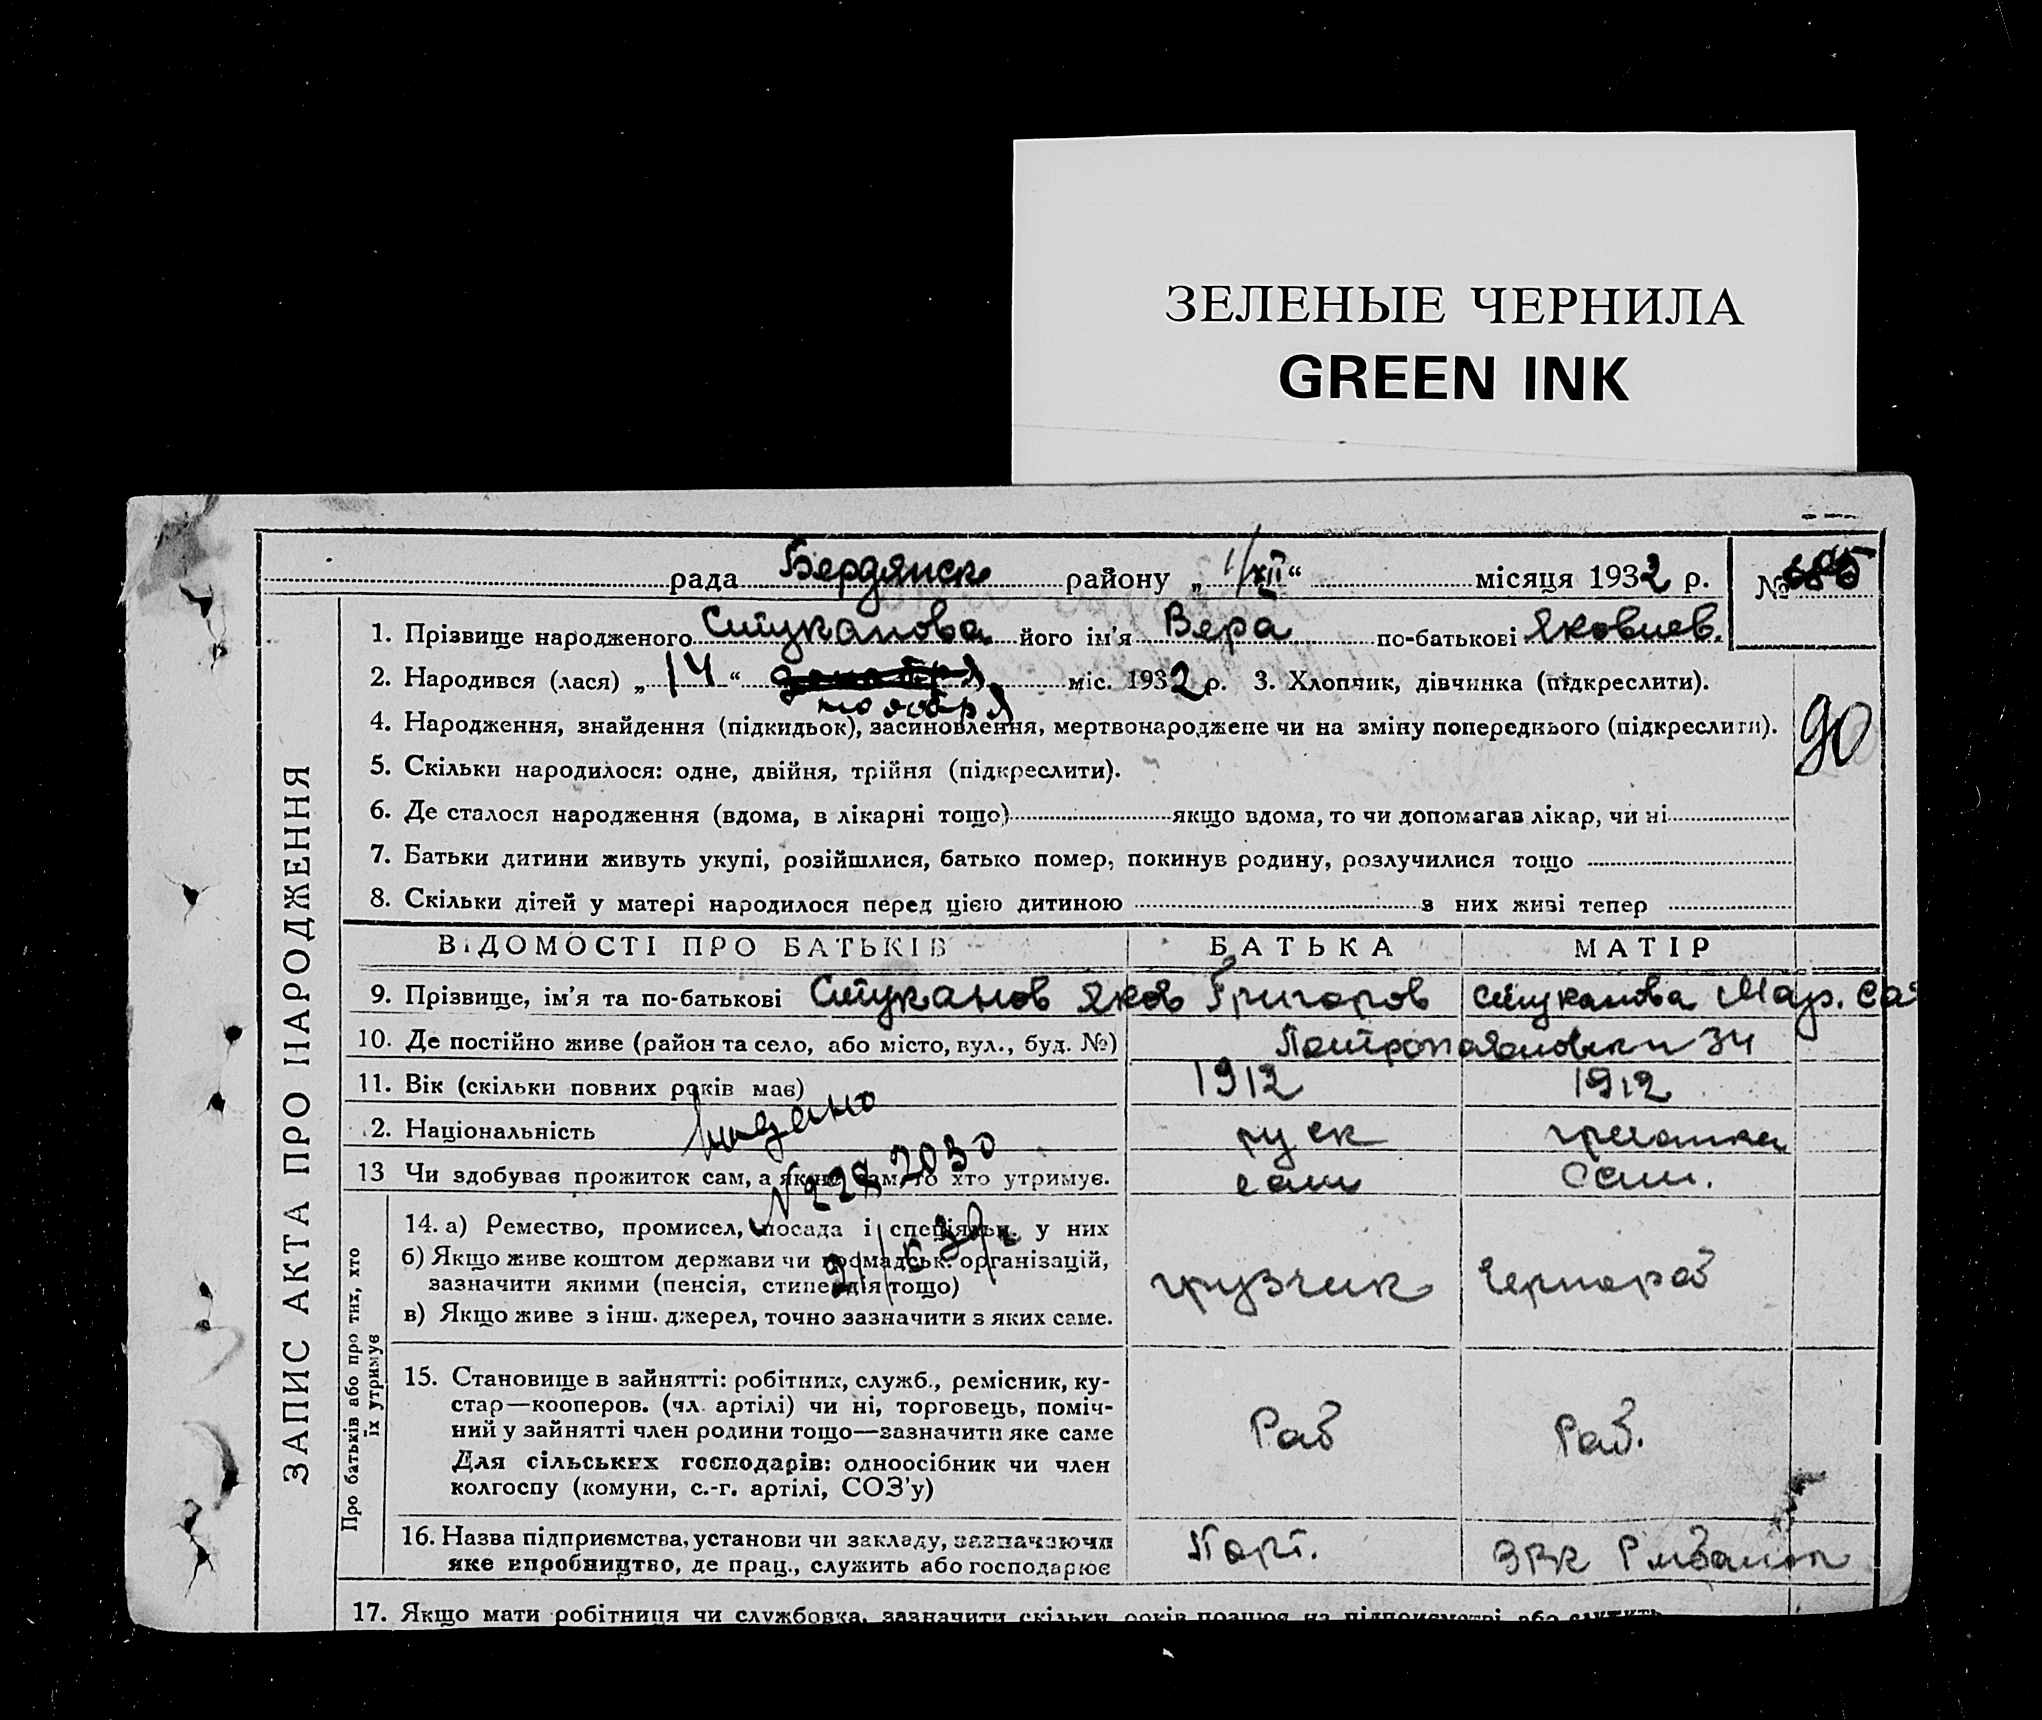 ЗЕЛЕНЫЕ ЧЕРНИЛА
GREEN INK
рада Бердянск району „ 1/XII “ місяця 1932 р. №
1. Прізвище народженого Стуканова його ім’я Вера по-батькові Яковлев.
2. Народився (лася) „ 14 “ ноября міс. 1932 р. 3. Хлопчик, дівчинка (підкреслити).
4. Народження, знайдення (підкидьок), засиновлення, мертвонароджене чи на зміну попереднього (підкреслити).
90
5. Скільки народилося: одне, двійня, трійня (підкреслити).
6. Де сталося народження (вдома, в лікарні тощо) якщо вдома, то чи допомагав лікар, чи ні
7. Батьки дитини живуть укупі, розійшлися, батько помер, покинув родину, розлучилися тощо
8. Скільки дітей у матері народилося перед цією дитиною з них живі тепер
ЗАПИС АКТА ПРО НАРОДЖЕННЯ
ВІДОМОСТІ ПРО БАТЬКІВ БАТЬКА МАТІР
9. Прізвище, ім’я та по-батькові Стуканов Яков Григоров Стуканова Мар. Са
10. Де постійно живе (район та село, або місто, вул., буд. №) 34
11. Вік (скільки повних років має) 1912 1912
2. Національність руск гречанка
Видано
13 Чи здобував прожиток сам, а як не сам, то хто утримує. сам Сам.
Про батьків або про тих, хто їх утримує
14. а) Ремество, промисел, посада і спеціяльн. у них
б) Якщо живе коштом держави чи громадськ. організацій,
зазначити якими (пенсія, стипендія тощо) грузчик Чернораб
в) Якщо живе з інш. джерел, точно зазначити з яких саме.
15. Становище в зайнятті: робітник, служб., ремісник, ку-
стар—кооперов. (чл. артілі) чи ні, торговець, поміч-
ний у зайнятті член родини тощо—зазначити яке саме Раб Раб.
Для сільських господарів: одноосібник чи член
колгоспу (комуни, с.-г. артілі, СОЗ’у)
16. Назва підприємства, установи чи закладу, зазначаючи Порт.
яке виробництво, де прац., служить або господарює
17. Якщо мати робітниця чи службовка, зазначити скільки років працює на підприємстві або служить